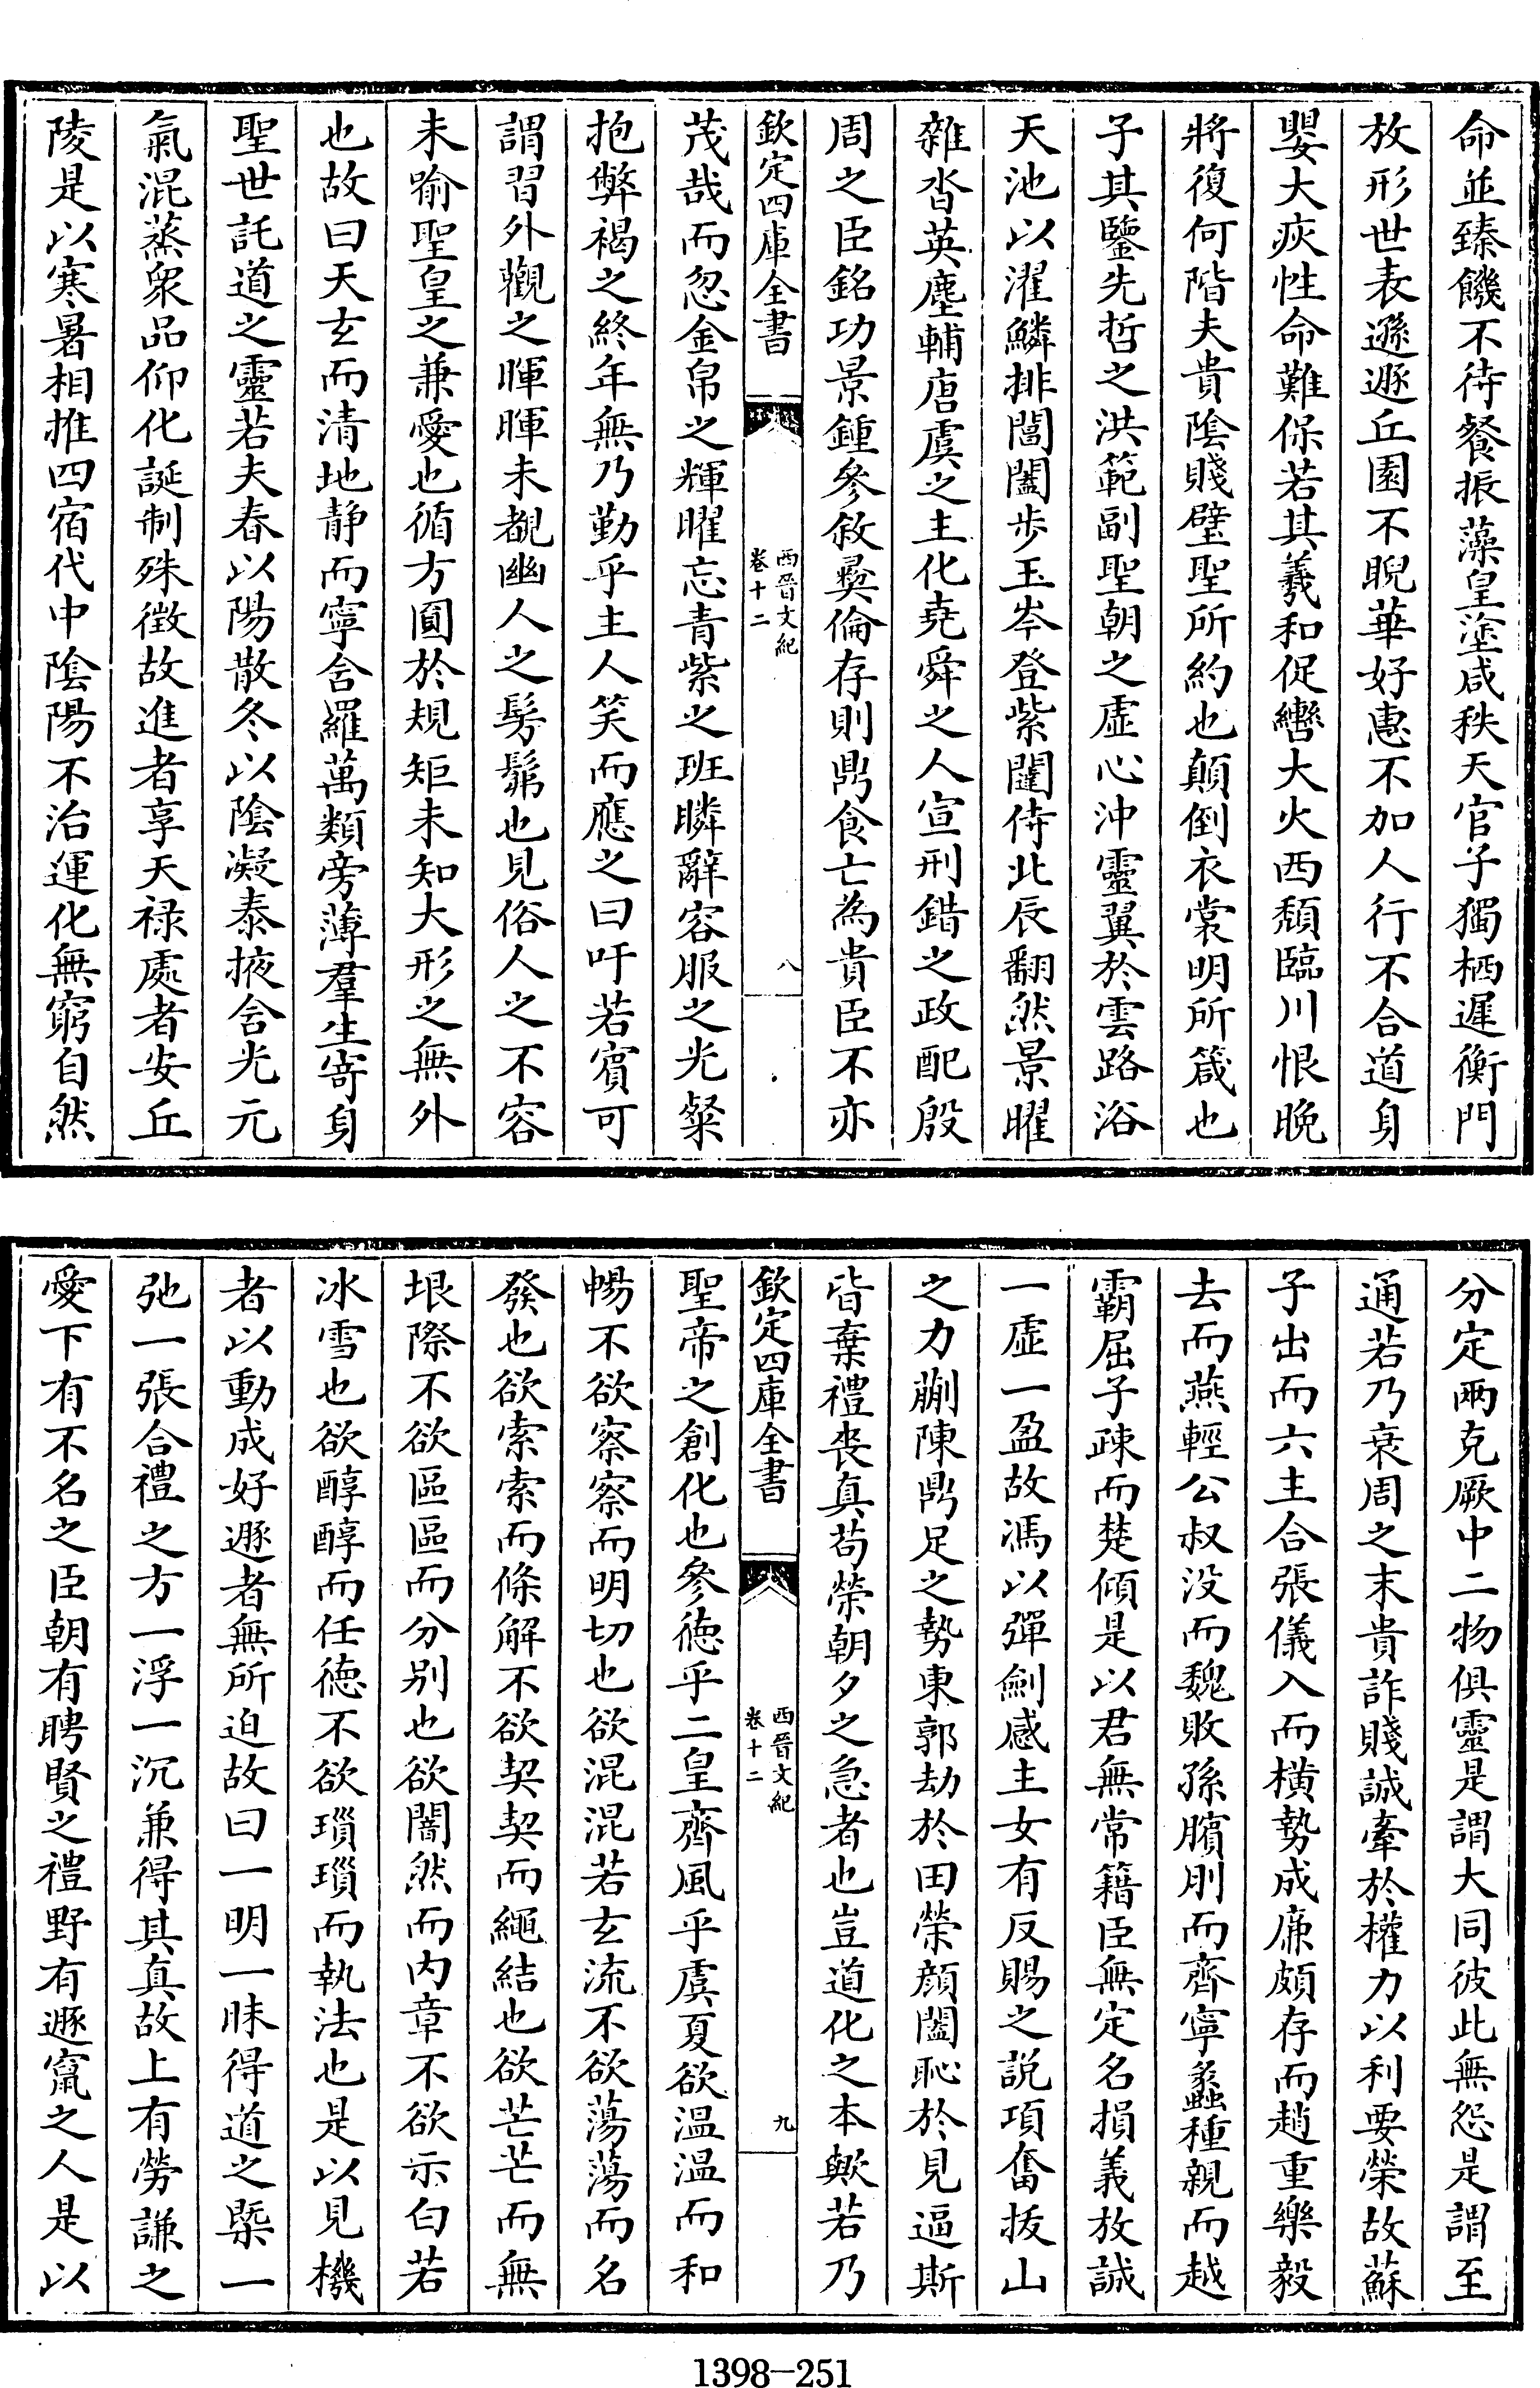 命並臻饑不待餐振藻皇塗咸秩天官子獨栖遲衡門
放形世表遜遯丘園不睨華好惠不加人行不合道身
嬰大疢性命難保若其羲和促轡大火西頹臨川恨晚
將復何階夫貴陰賤璧聖所約也顛倒衣裳明所箴也
子其鑒先哲之洪範副聖朝之虛心沖靈翼於雲路浴
天池以濯鱗排閶闔步玉岑登紫闥侍北辰翻然景曜
雜沓英塵輔唐虞之主化堯舜之人宣刑錯之政配殷
周之臣銘功景鍾參敘彞倫存則鼎食亡為貴臣不亦
欽定四庫全書
西晉文紀
卷十二
八
茂哉而忽金帛之輝曜忘青紫之班瞵辭容服之光粲
抱弊褐之終年無乃勤乎主人笑而應之曰吁若賓可
謂習外觀之暉暉未覩幽人之髣髴也見俗人之不容
未喻聖皇之兼愛也循方圓於規矩未知大形之無外
也故曰天玄而清地静而寧含羅萬類旁薄羣生寄身
聖世託道之靈若夫春以陽散冬以陰凝泰掖含光元
氣混蒸衆品仰化誕制殊徵故進者享天禄處者安丘
陵是以寒暑相推四宿代中陰陽不治運化無窮自然
分定兩克厥中二物俱靈是謂大同彼此無怨是謂至
通若乃衰周之末貴詐賤誠牽於權力以利要榮故蘇
子出而六主合張儀入而橫勢成廉頗存而趙重樂毅
去而燕輕公叔没而魏敗孫臏刖而齊寧蠡種親而越
霸屈子疎而楚傾是以君無常籍臣無定名損義放誠
一虛一盈故馮以彈劍感主女有反賜之説項奮拔山
之力蒯陳鼎足之勢東郭劫於田榮顔闔恥於見逼斯
皆棄禮喪真苟榮朝夕之急者也豈道化之本歟若乃
欽定四庫全書
西晉文紀
卷十二
九
聖帝之創化也參徳乎二皇齊風乎虞夏欲温温而和
暢不欲察察而明切也欲混混若玄流不欲蕩蕩而名
發也欲索索而條解不欲契契而繩結也欲芒芒而無
垠際不欲區區而分别也欲闇然而内章不欲示白若
冰雪也欲醇醇而任徳不欲瑣瑣而執法也是以見機
者以動成好遯者無所迫故曰一明一昧得道之槩一
弛一張合禮之方一浮一沉兼得其真故上有勞謙之
愛下有不名之臣朝有聘賢之禮野有遯竄之人是以
1398-251